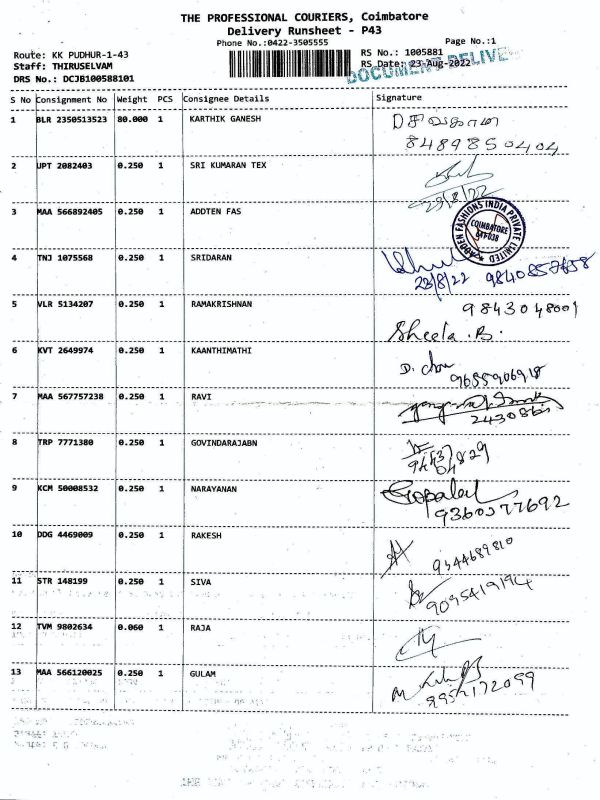 THE PROFESSIONAL COURIERS, Coimbatore
Delivery Runsheet - P43
Phone No.:0422-3505555
Page No.:1
Route: KK PUDHUR-1-43
RS No.: 1005881
Staff: THIRUSELVAM
RS Date: 23-Aug-2022
DRS No.: DCJB100588101
S No Consignment No Weight PCS Consignee Details Signature
1 BLR 2350513523 80.000 1 KARTHIK GANESH
8489850404
2 UPT 2082403 0.250 1 SRI KUMARAN TEX
23/8/22
3 MAA 566892405 0.250 1 ADDTEN FAS
FASHIONS INDIA PRIVATE LIMITED
COIMBATORE
4 TNJ 1075568 0.250 1 SRIDARAN
23/8/22
5 VLR 5134207 0.250 1 RAMAKRISHNAN 9843048001
Sheela. B.
6 KVT 2649974 0.250 1 KAANTHIMATHI
9655906918
7 MAA 567757238 0.250 1 RAVI
8 TRP 7771380 0.250 1 GOVINDARAJABN
9 KCM 50008532 0.250 1 NARAYANAN
10 DDG 4469009 0.250 1 RAKESH
9344689810
11 STR 148199 0.250 1 SIVA
9095419194
12 TVM 9802634 0.060 1 RAJA
13 MAA 566120025 0.250 1 GULAM